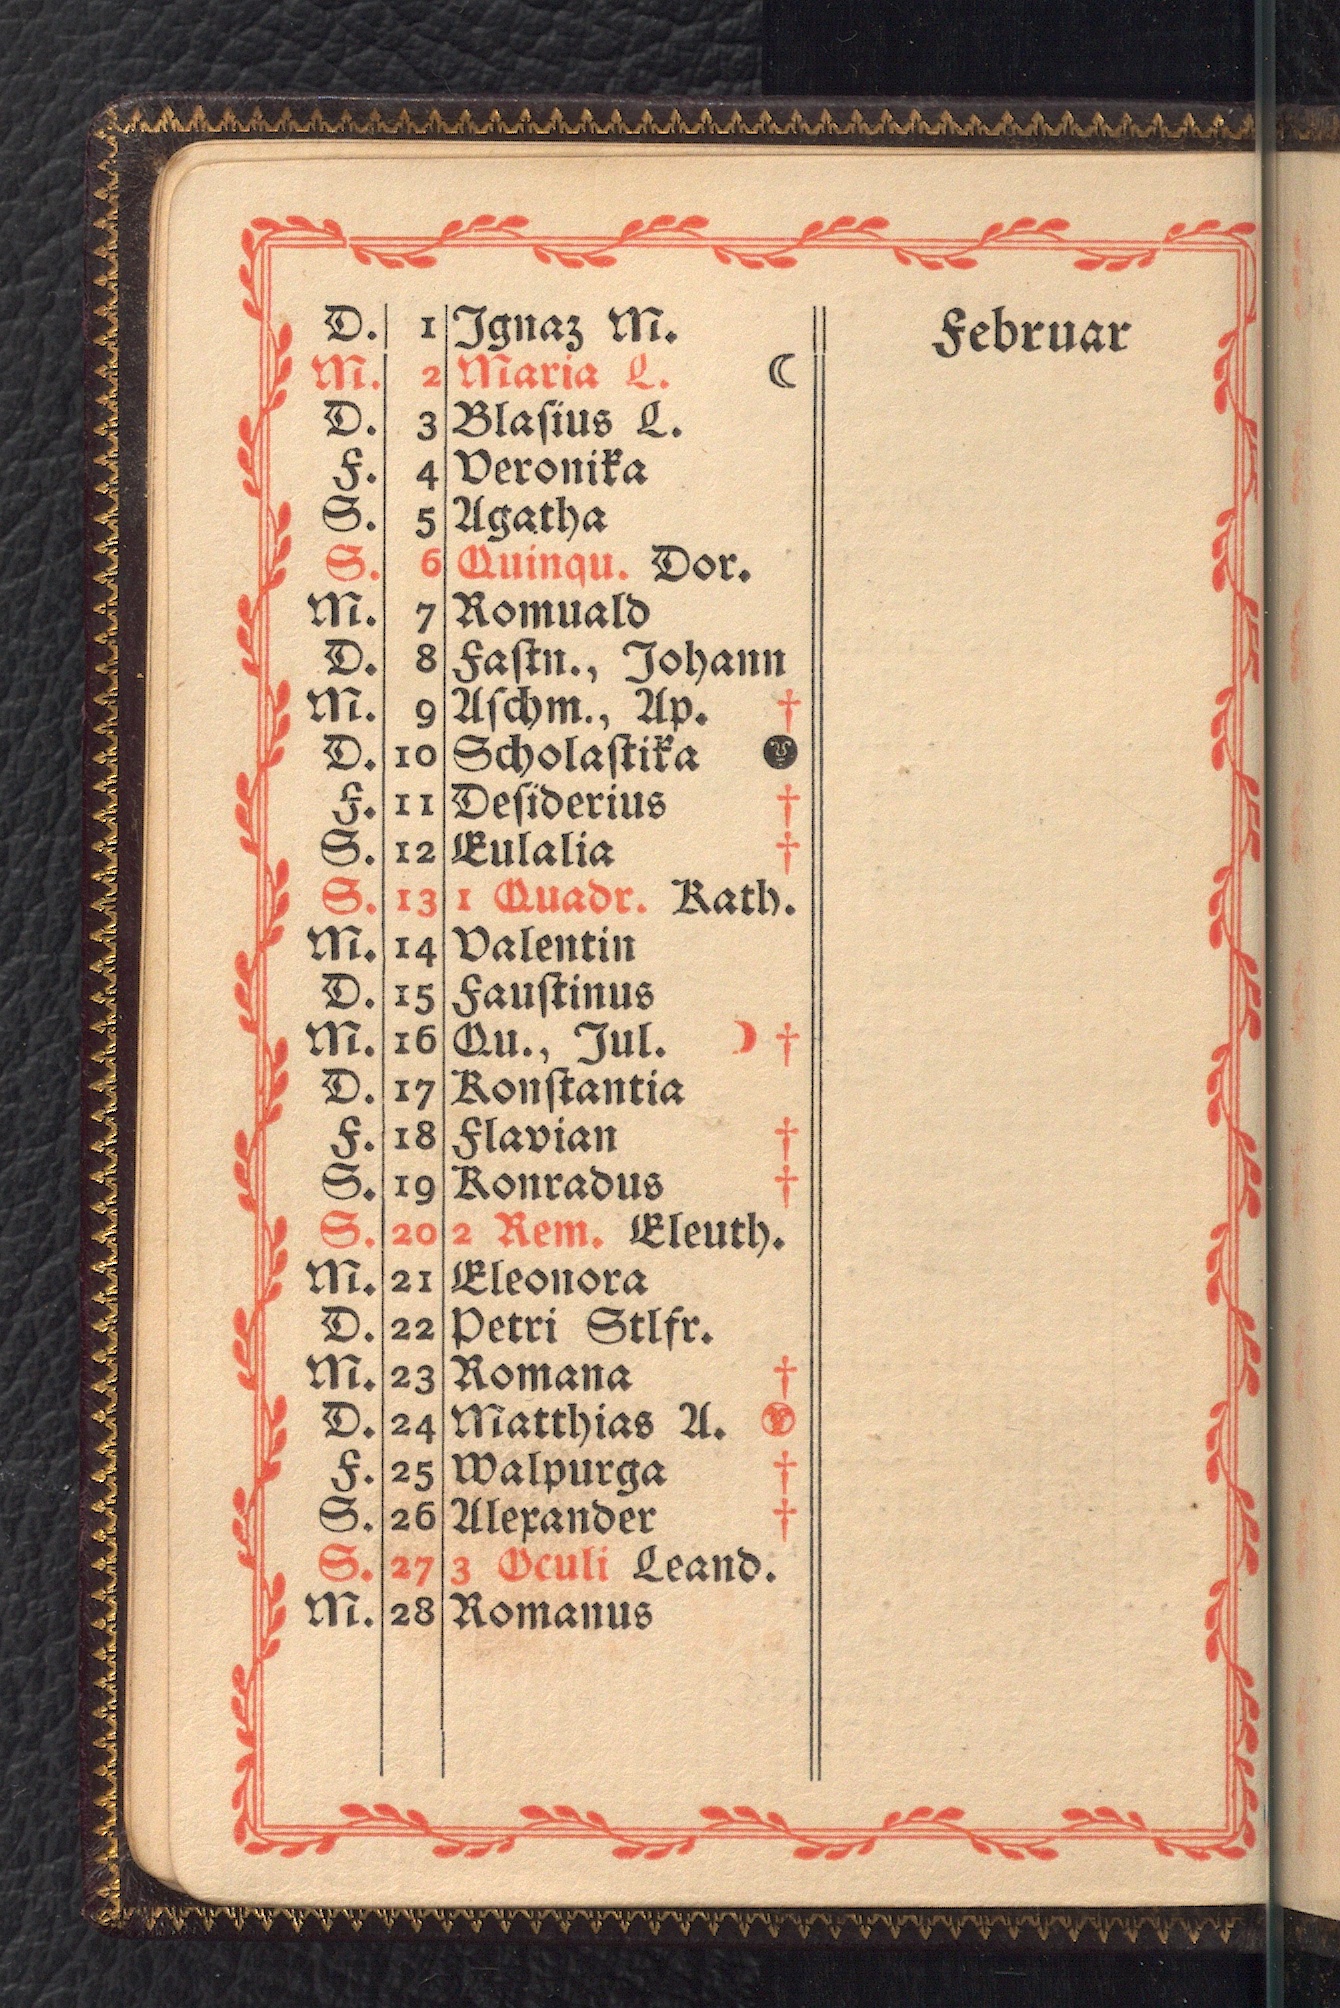 Februar
D. 1 Ignaz M.
M. 2 Maria L. ☾
D. 3 Blaſius L.
F. 4 Veronika
S. 5 Agatha
S. 6 Quinqu. Dor.
M. 7 Romuald
D. 8 Faſtn., Johann
M. 9 Aſchm., Ap. †
D. 10 Scholaſtika
F. 11 Deſiderius †
S. 12 Eulalia †
S. 13 1 Quadr. Kath.
M. 14 Valentin
D. 15 Fauſtinus
M. 16 Qu., Jul. ☽ †
D. 17 Konſtantia
F. 18 Flavian †
S. 19 Konradus †
S. 20 2 Rem. Eleuth.
M. 21 Eleonora
D. 22 Petri Stlfr.
M. 23 Romana †
D. 24 Matthias A.
F. 25 Walpurga †
S. 26 Alexander †
S. 27 3 Oculi Leand.
M. 28 Romanus